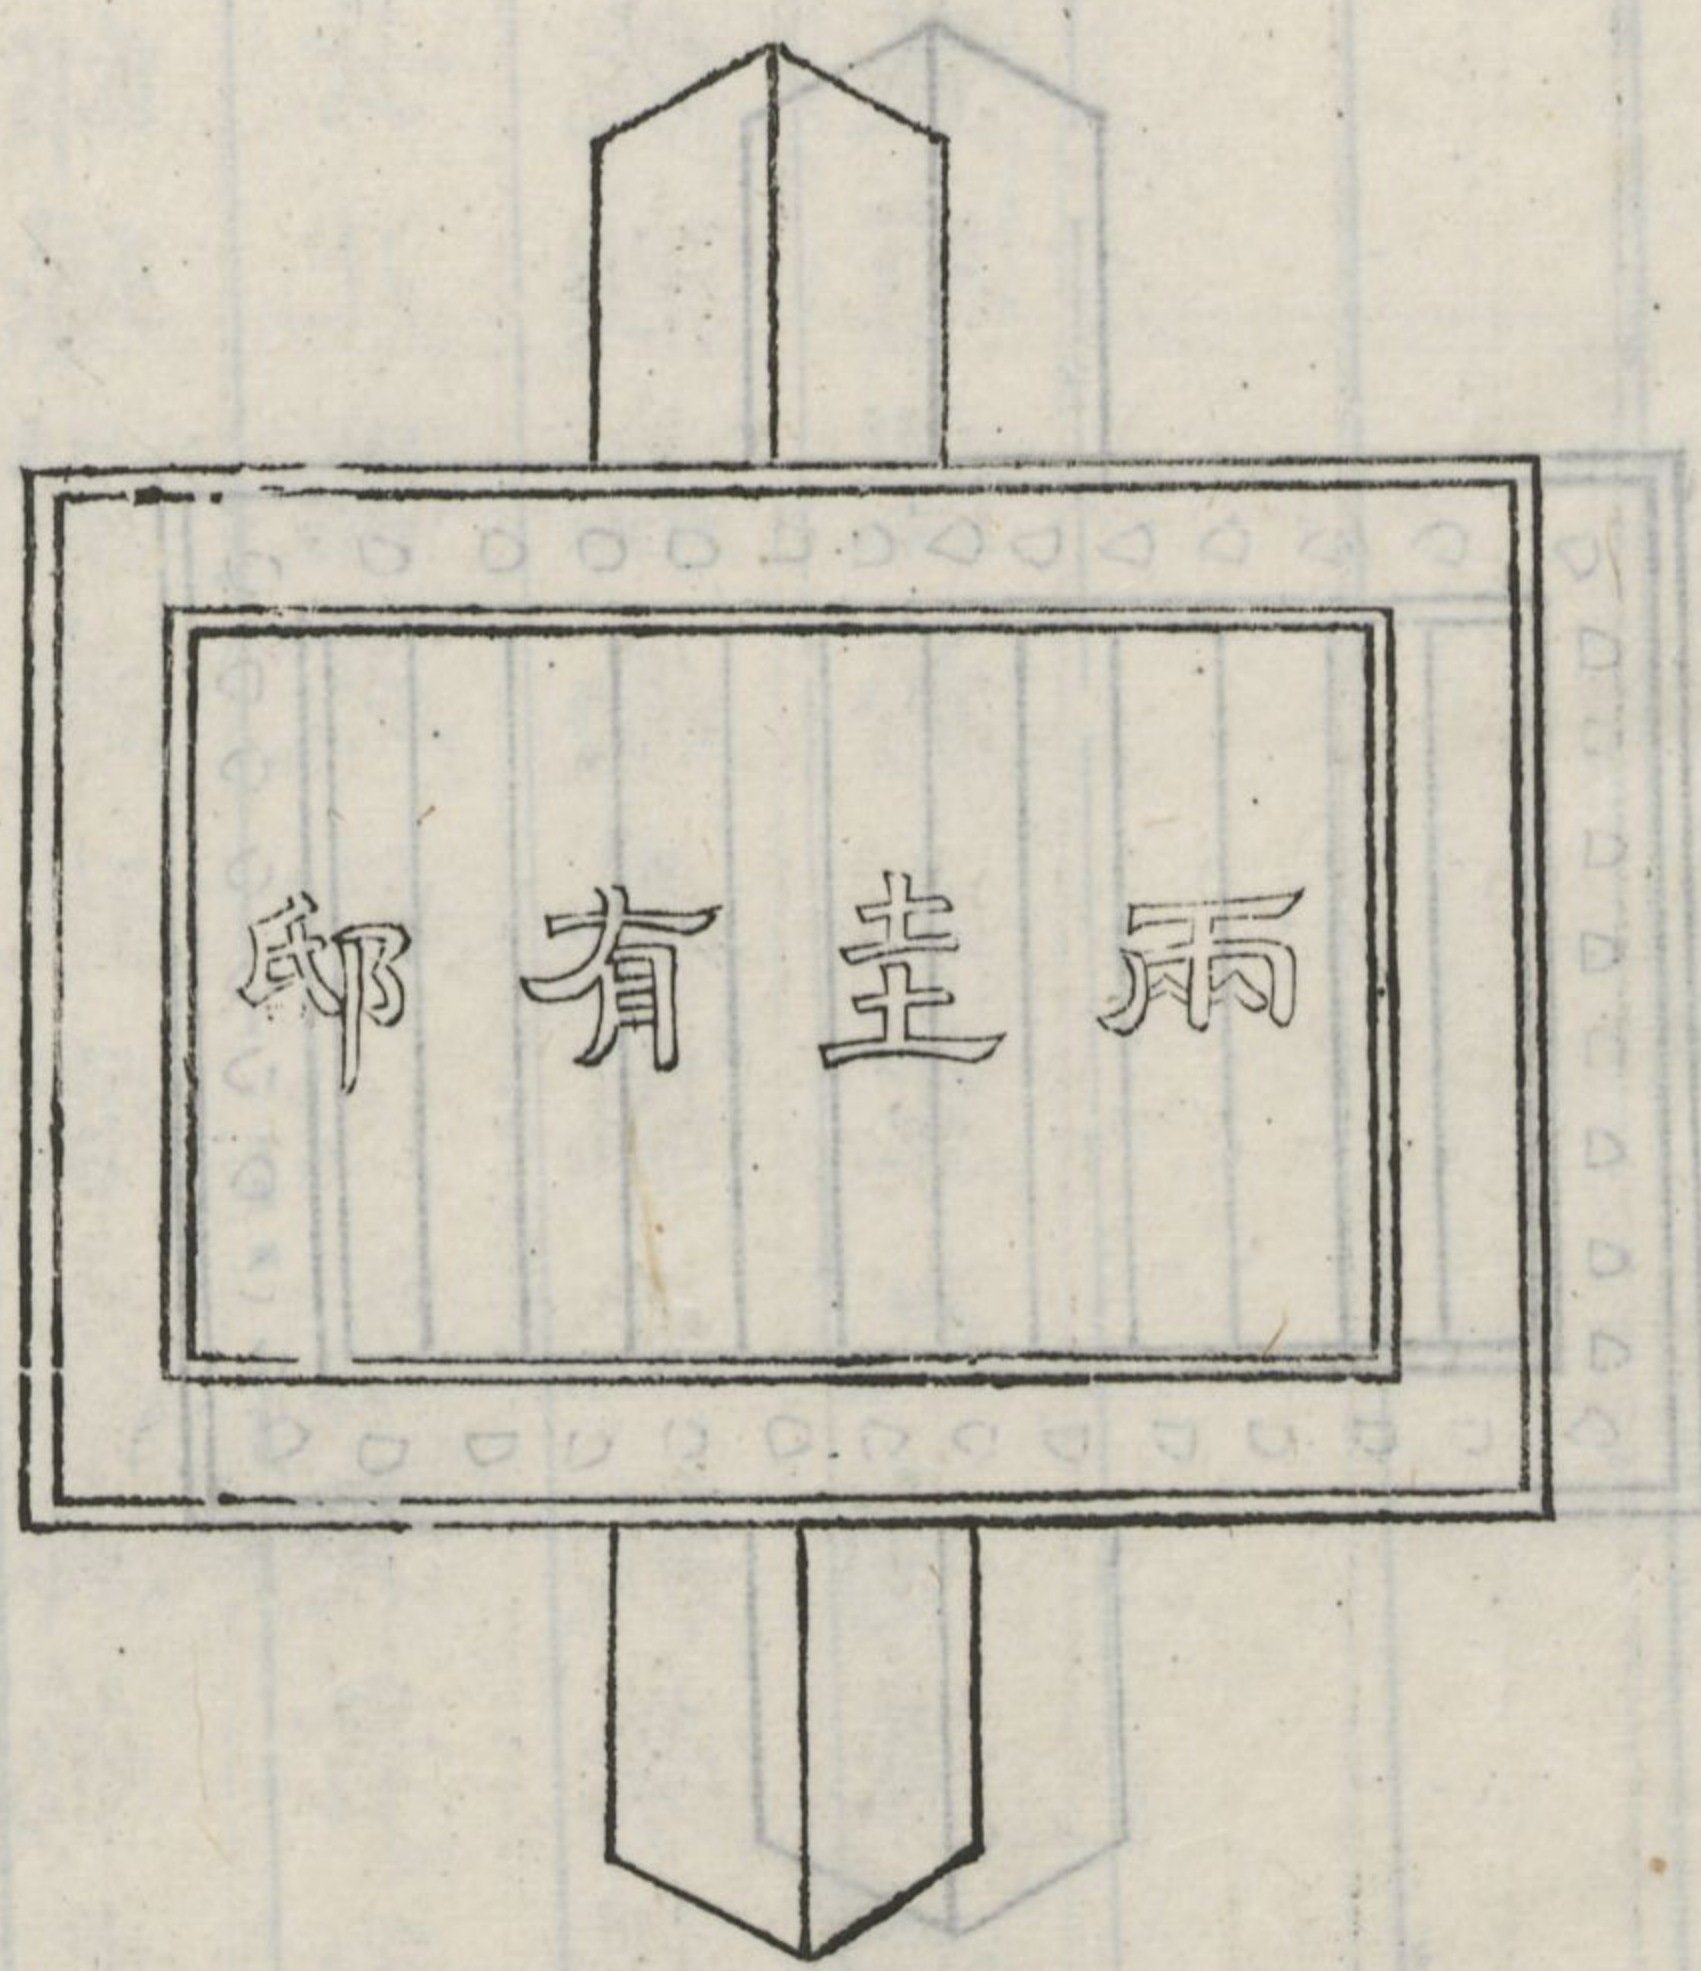 兩圭有邸